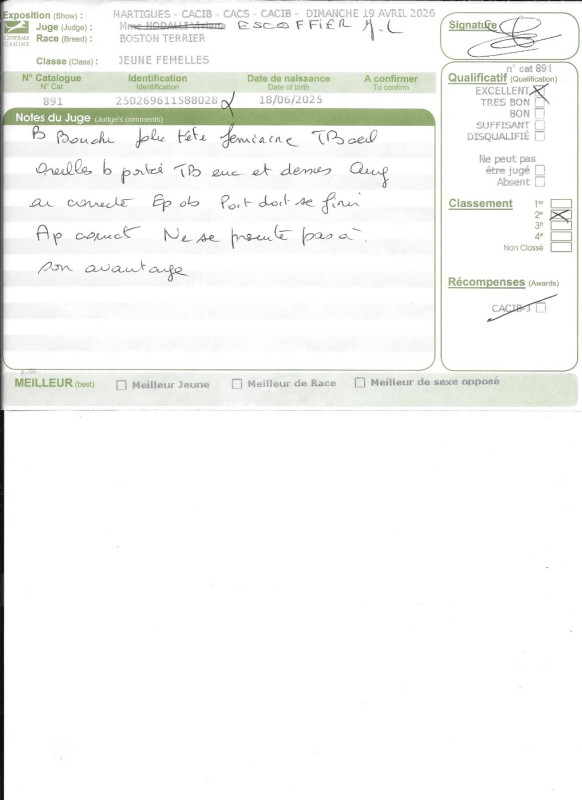 Exposition (Show) : MARTIGUES - CACIB - CACS - CACIB - DIMANCHE 19 AVRIL 2026
CENTRALE CANINE
Juge (Judge) : Mme NODALLI Viviana ESCOFFIER J.C
Race (Breed) : BOSTON TERRIER
Classe (Class) : JEUNE FEMELLES
N° Catalogue Identification Date de naissance A confirmer
N° Cat Identification Date of birth To confirm
891 250269611588028 18/06/2025
Notes du Juge (Judge's comments)
B Bouche jolie tête feminine TB oeil
Oreilles b porté TB enc et dessus Ang
ar correcte Ep ob Poit doit se finir
Ap correct Ne se presente pas à
son avantage
MEILLEUR (best) Meilleur Jeune Meilleur de Race Meilleur de sexe opposé
Signature
n° cat 891
Qualificatif (Qualification)
EXCELLENT
TRES BON
BON
SUFFISANT
DISQUALIFIÉ
Ne peut pas
être jugé
Absent
Classement 1er
2e
3e
4e
Non Classé
Récompenses (Awards)
CACIB-J